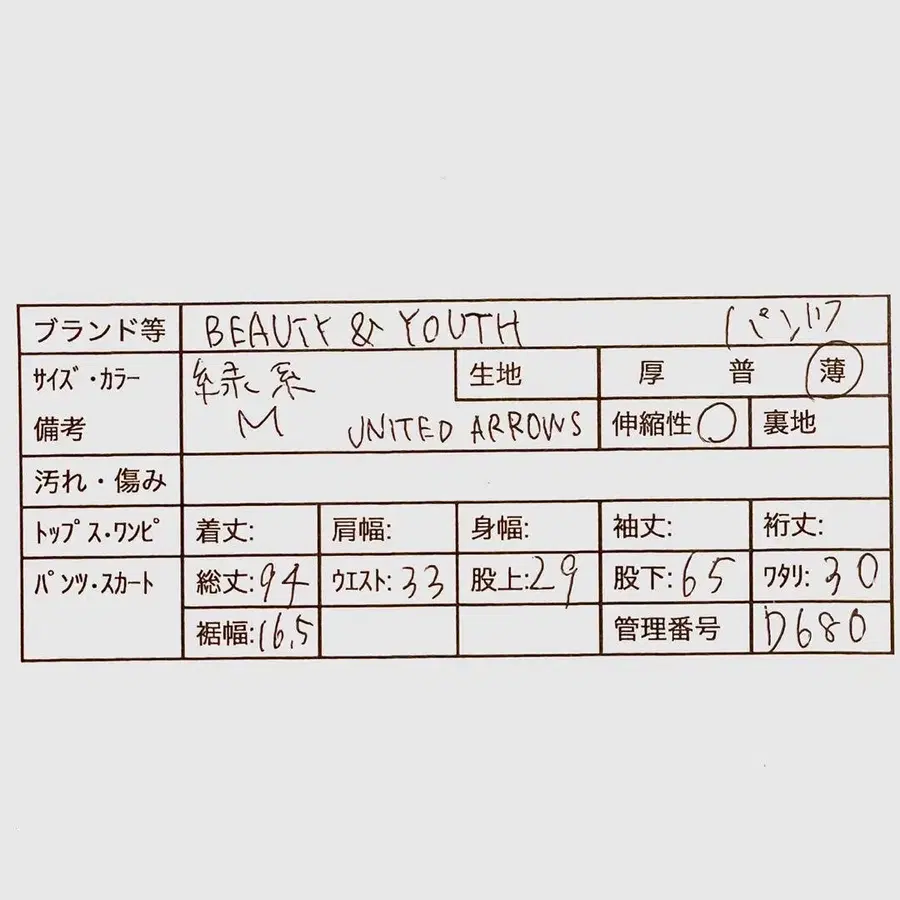 ブランド等 BEAUTY & YOUTH パンツ
サイズ・カラー 緑系 生地 厚 普 薄
備考 M UNITED ARROWS 伸縮性 ○ 裏地
汚れ・傷み
トップス・ワンピ 着丈: 肩幅: 身幅: 袖丈: 裄丈:
パンツ・スカート 総丈:94 ウエスト:33 股上:29 股下:65 ワタリ:30
裾幅:16.5 管理番号 D680